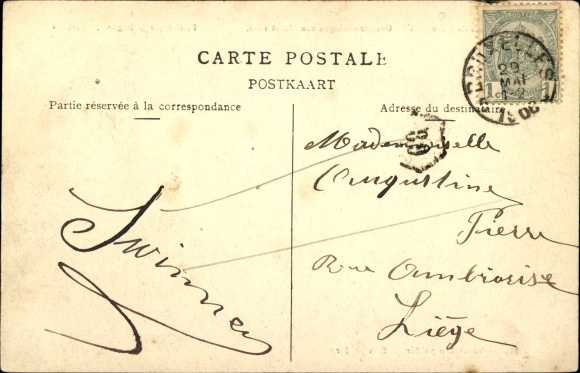 CARTE POSTALE
POSTKAART
Partie réservée à la correspondance
Adresse du destinataire
BRUXELLES
29
MAI
1908
Mademoiselle
Augustine
Pierre
Rue Ambroise
Liège
Swinney